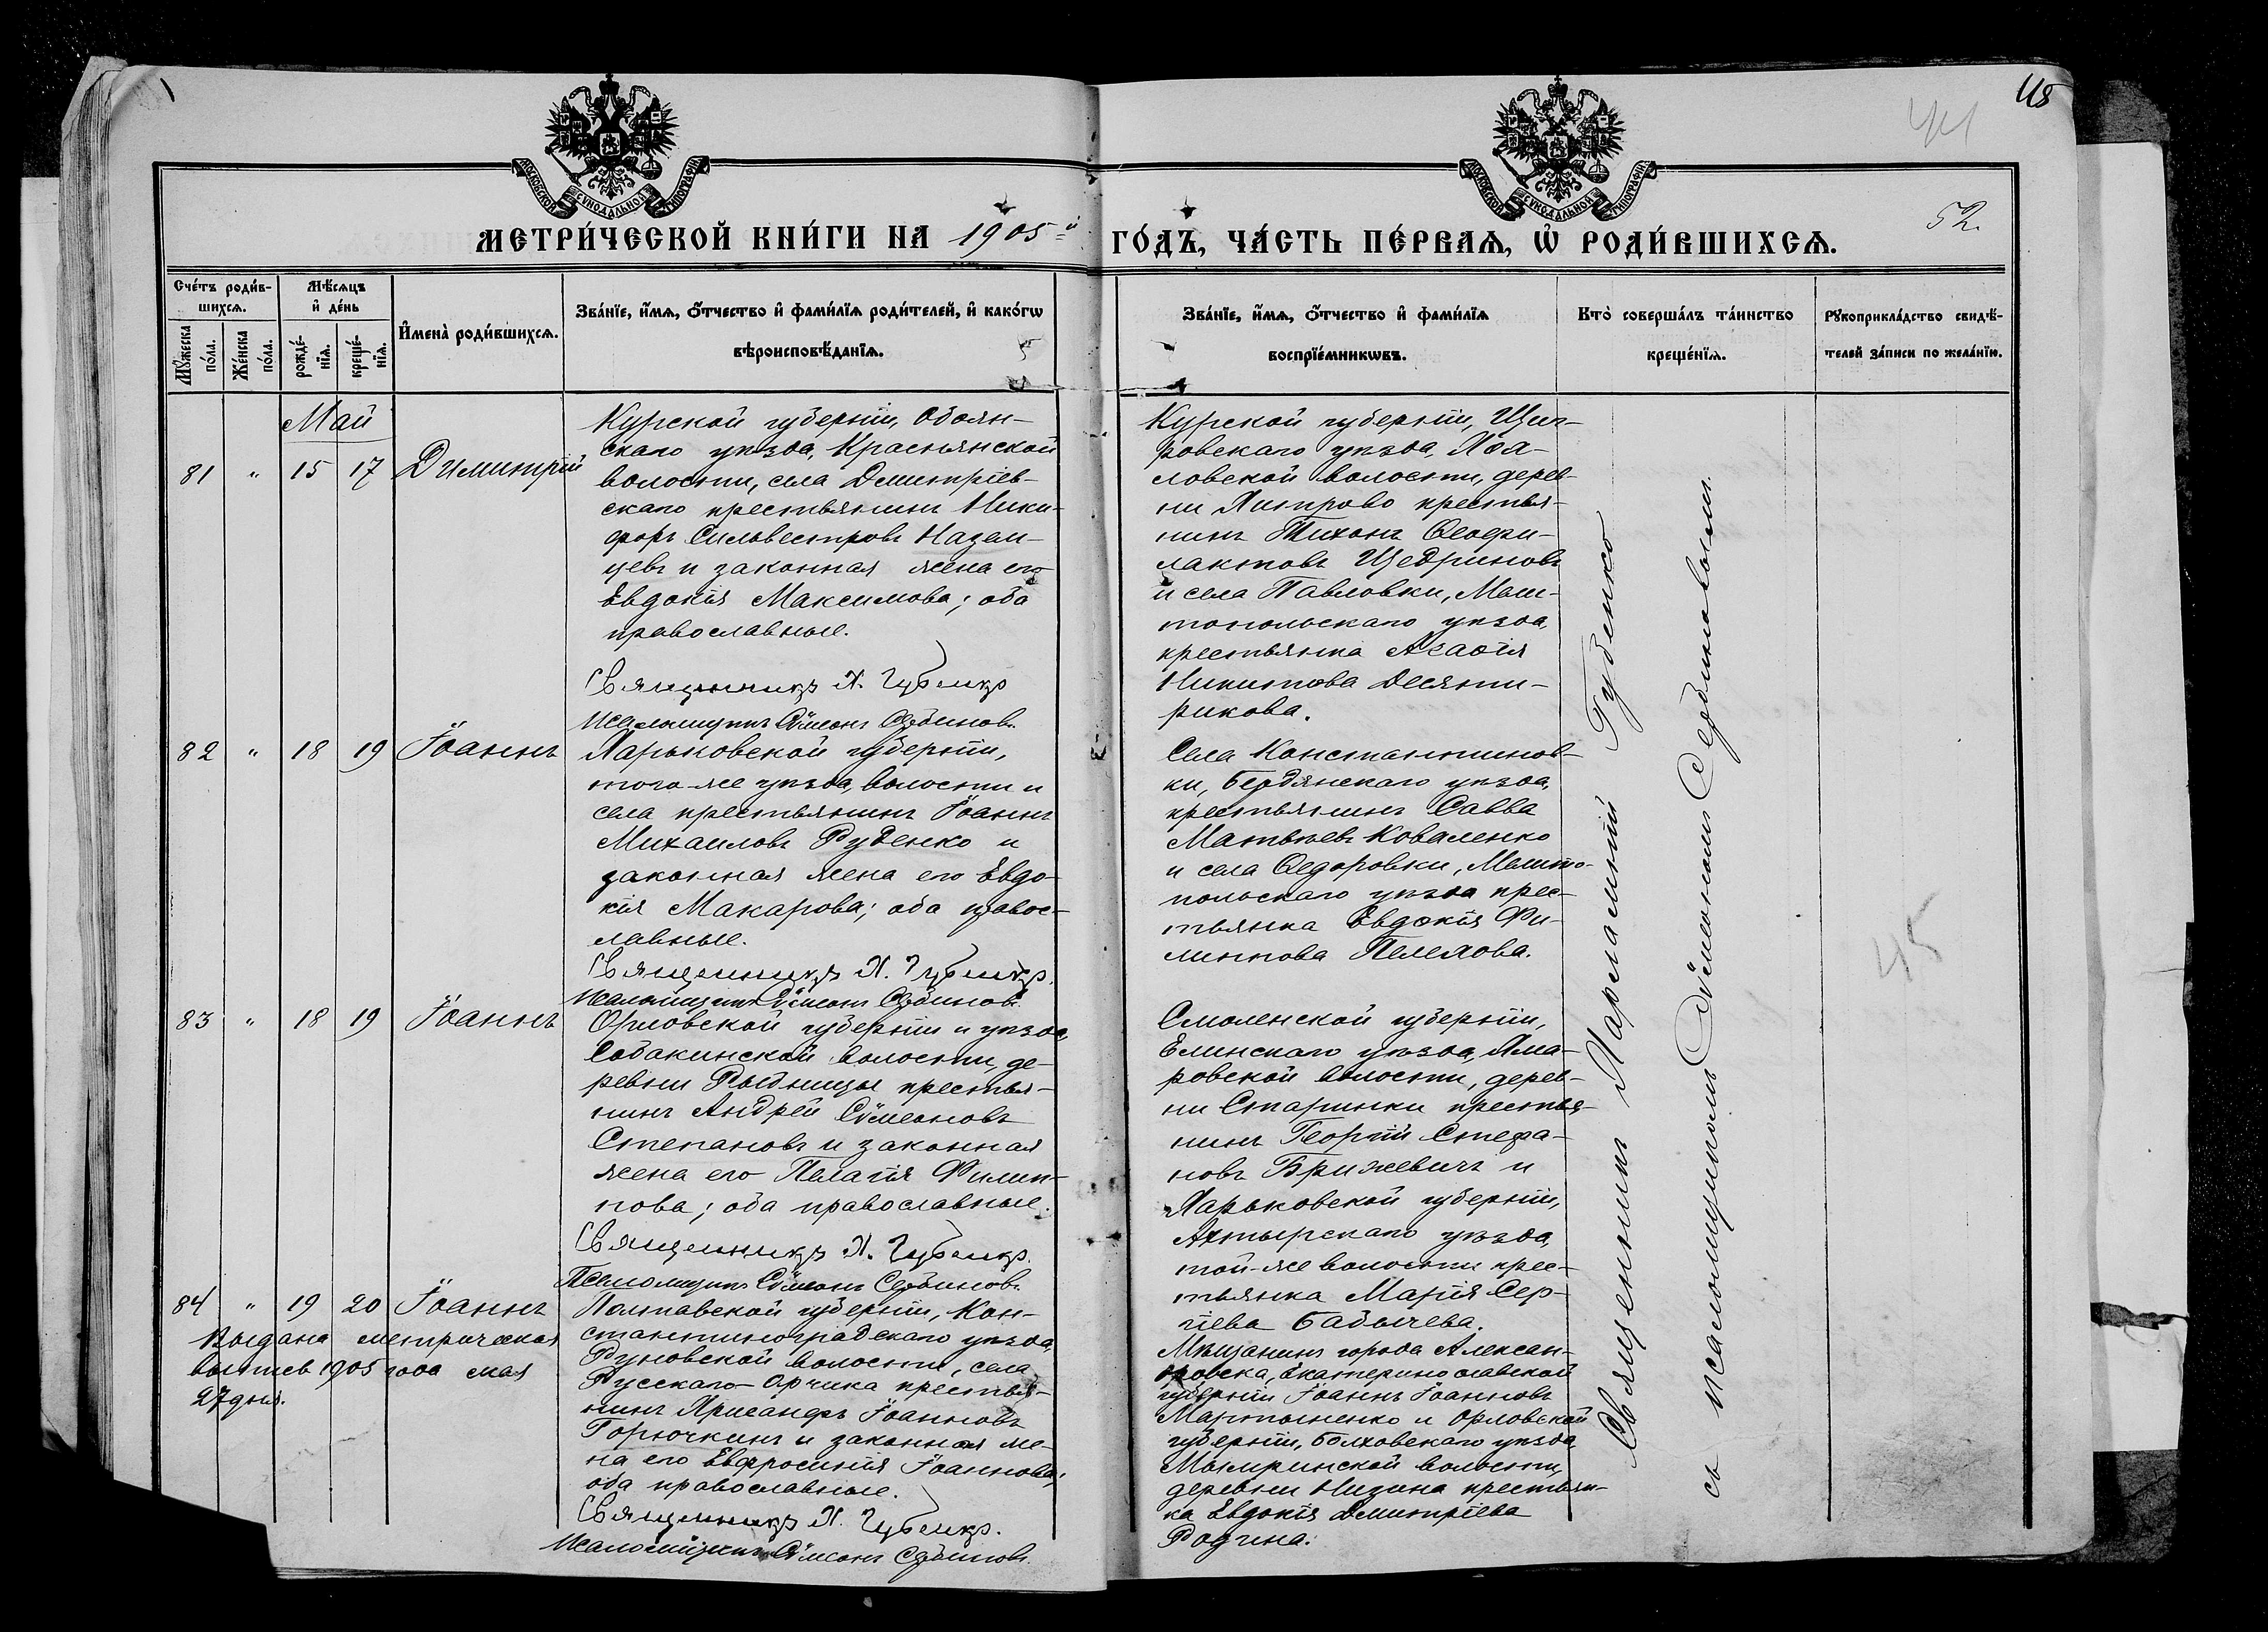 45
41
52.
МОСКОВСКОЙ СѴНОДАЛЬНОЙ ТИПОГРАФІИ
МОСКОВСКОЙ СѴНОДАЛЬНОЙ ТИПОГРАФІИ
МЕТРИ́ЧЕСКОЙ КНИ́ГИ НА 1905 й ГО́ДЪ, ЧА́СТЬ ПЕ́РВАѦ, Ѡ҆ РОДИ́ВШИХСѦ.
Сче́тъ роди́в-
шихсѧ.
Мꙋ́жеска по́ла.
Же́нска по́ла.
Мѣ́сѧцъ
и҆ де́нь
рожде́-
нїѧ.
креще́-
нїѧ.
И҆мена̀ роди́вшихсѧ.
Зва́нїе, и҆́мѧ, ѻ҆́тчество и҆ фами́лїѧ роди́телей, и҆ како́гѡ
вѣроисповѣ́данїѧ.
Зва́нїе, и҆́мѧ, ѻ҆́тчество и҆ фами́лїѧ
воспрїе́мникѡвъ.
Кто̀ соверша́лъ та́инство
креще́нїѧ.
Рꙋкоприкла́дство свидѣ́-
телей за́писи по жела́нїю.
Май
81 " 15 17 Димитрій
Курской губерніи, Обоян-
скаго уѣзда, Краснянской
волости, села Дмитріев-
скаго крестьянинъ Ники-
форъ Сильвестровъ Казан-
цевъ и законная жена его
Евдокія Максимова; оба
православные.
Священникъ Х. Губенко
Псаломщикъ Сѵмеонъ Сербиновъ.
Курской губерніи, Щиг-
ровскаго уѣзда, Хох-
ловской волости, дерев-
ни Хитрово крестья-
нинъ Тихонъ Ѳеофи-
лактовъ Щедриновъ
и села Павловки, Мели-
топольскаго уѣзда,
крестьянка Агафія
Никитова Десяти-
рикова.
82 " 18 19 Іоаннъ
Харьковской губерніи,
того-же уѣзда, волости и
села крестьянинъ Іоаннъ
Михаиловъ Руденко и
законная жена его Евдо-
кія Макарова; оба правос-
лавные.
Священникъ Х. Губенко.
Псаломщикъ Сѵмеонъ Сербиновъ.
Села Константинов-
ки, Бердянскаго уѣзда,
крестьянинъ Савва
Матвѣевъ Коваленко
и села Ѳедоровки, Мелито-
польскаго уѣзда крес-
тьянка Евдокія Фи-
липпова Пелехова.
83 " 18 19 Іоаннъ
Орловской губерніи и уѣзда,
Собакинской волости, де-
ревни Рыбницы крестья-
нинъ Андрей Сѵмеоновъ
Степановъ и законная
жена его Пелагія Филип-
пова; оба православные.
Священникъ Х. Губенко.
Псаломщикъ Сѵмеонъ Сербиновъ.
Смоленской губерніи,
Елинскаго уѣзда,
ровской волости, дерев-
ни Старинки крестья-
нинъ Георгій Стефа-
новъ Брижевичъ и
Харьковской губерніи,
Ахтырскаго уѣзда,
той-же волости крес-
тьянка Марія Сер-
гіева Бабычева.
84 " 19 20 Іоаннъ
Выдана метрическая
выпись 1905 года мая
27 дня.
Полтавской губерніи, Кон-
стантиноградскаго уѣзда,
Руновской волости, села
Русскаго-Орчика крестья-
нинъ Хрисанфъ Іоанновъ
Горючкинъ и законная же-
на его Евфросинія Іоаннова;
оба православные.
Священникъ Х. Губенко.
Псаломщикъ Сѵмеонъ Сербиновъ.
Мѣщанинъ города Алексан-
дровска, Екатеринославской
губерніи Іоаннъ Іоанновъ
Мартыненко и Орловской
губерніи, Болховскаго уѣзда,
волости,
деревни Низина крестьян-
ка Евдокія Дмитріева
Родина.
Священникъ Харлампій Губенко
съ псаломщикомъ Сѵмеономъ Сербиновымъ.
45